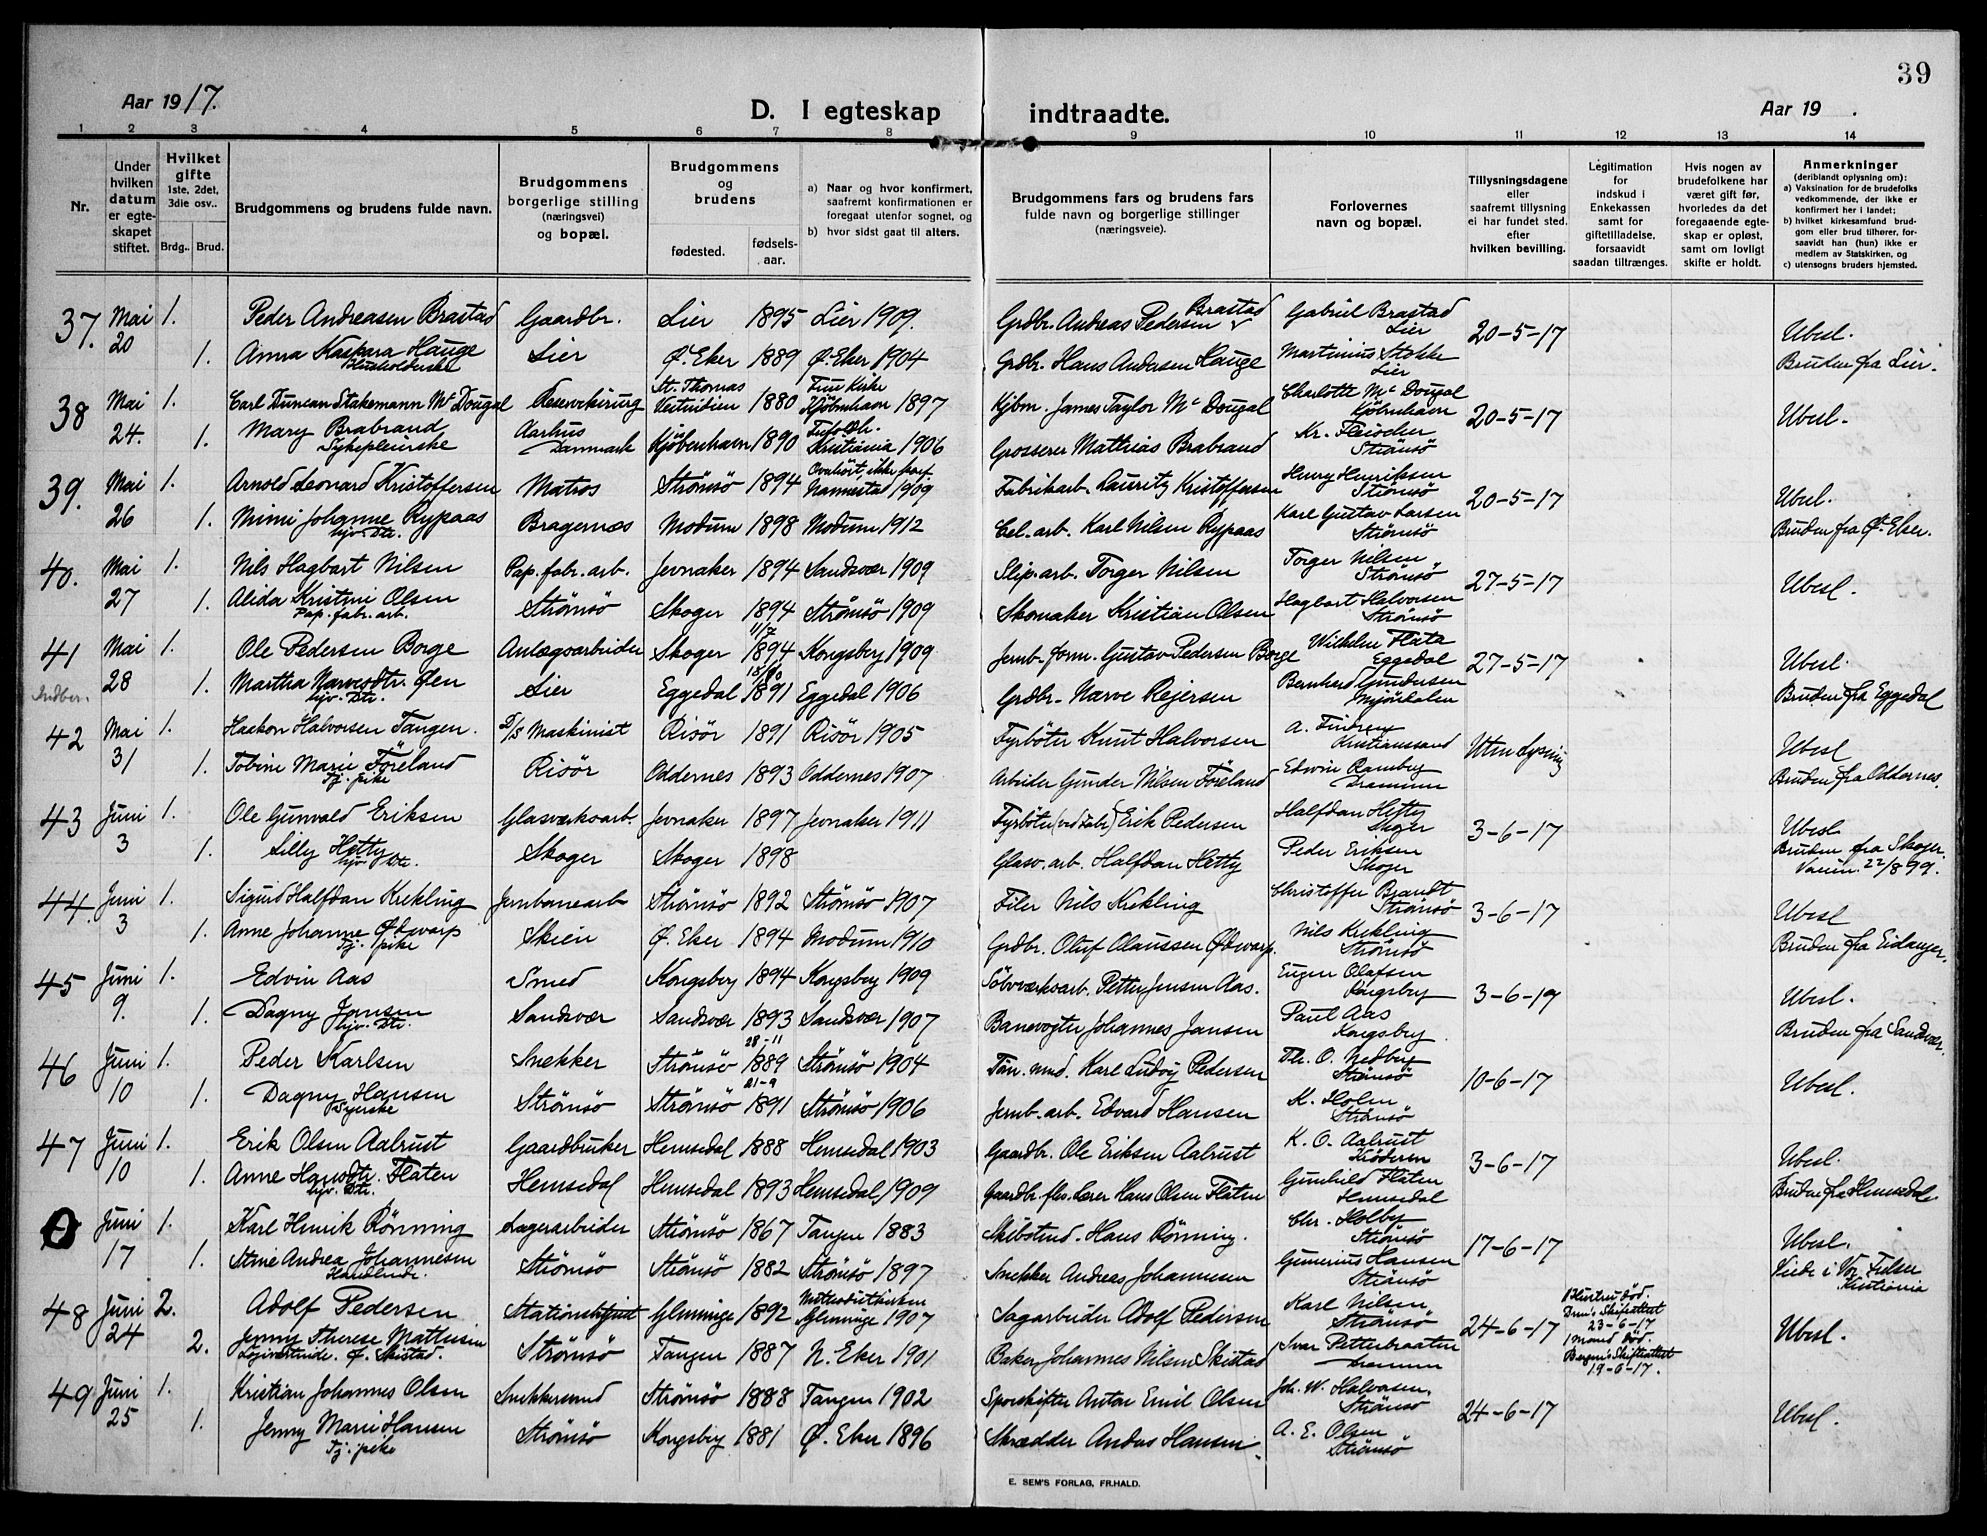 39
Aar 1917.
D. I egteskap indtraadte.
Aar 19 .
1 2 3 4 5 6 7 8 9 10 11 12 13 14
Nr.
Under hvilken datum er egteskapet stiftet.
Hvilket gifte 1ste, 2det, 3die osv..
Brdg.. Brud.
Brudgommens og brudens fulde navn.
Brudgommens borgerlige stilling (næringsvei) og bopæl.
Brudgommens og brudens
fødested. fødselsaar.
a) Naar og hvor konfirmert, saafremt konfirmationen er foregaat utenfor sognet, og
b) hvor sidst gaat til alters.
Brudgommens fars og brudens fars fulde navn og borgerlige stillinger (næringsveie).
Forlovernes navn og bopæl.
Tillysningsdagene eller saafremt tillysning ei har fundet sted, efter hvilken bevilling.
Legitimation for indskud i Enkekassen samt for giftetilladelse, forsaavidt saadan tiltrænges.
Hvis nogen av brudefolkene har været gift før, hvorledes da det foregaaende egteskap er opløst, samt om lovligt skifte er holdt.
Anmerkninger (deriblandt oplysning om):
a) Vaksination for de brudefolks vedkommende, der ikke er konfirmert her i landet;
b) hvilket kirkesamfund brudgom eller brud tilhører, forsaavidt han (hun) ikke er medlem av Statskirken, og
c) utensogns bruders hjemsted.
37. Mai 1. Peder Andreasen Brastad Gaardbr. Lier 1895 Lier 1909. Grdbr. Andreas Pedersen Brastad Gabriel Brastad Lier 20-5-17 Ubesl.
20 1. Anna Kaspara Hauge Husholderske Lier Ø. Eker 1889 Ø. Eker 1904 Grdbr. Hans Andersen Hauge Martinius Stokke Lier Bruden fra Lier.
38 Mai 1. Carl Duncan Stakemann Mc Dougal Reservekirurg St. Thomas Vestindien 1880 Frue Kirke Kjöbenhavn 1897 Kjbm. James Taylor Mc Dougal Charlotte Mc Dougal Kjöbenhavn 20-5-17 Ubesl.
24. 1. Mary Brabrand Sykepleierske Aarhus Danmark Kjöbenhavn 1890 Kristiania 1906 Grosserer Mathias Brabrand Kr. Fleischer Strömsö
39. Mai 1. Arnold Leonard Kristoffersen Matros Strömsö 1894 Nannestad 1909 Fabrikarb. Lauritz Kristoffersen Henry Henriksen Strömsö 20-5-17 Ubesl.
26 1. Mimi Johanne Rypaas hjv. Dtr. Bragernæs Modum 1898 Modum 1912 Cel. arb. Karl Nilsen Rypaas Karl Gustav Larsen Strömsö Bruden fra Ø. Eker.
40. Mai 1. Nils Hagbart Nilsen Pap. fabr. arb. Jevnaker 1894 Sandsvær 1909 Slip. arb. Torger Nilsen Torger Nilsen Strömsö 27-5-17 Ubesl.
27 1. Alida Kristine Olsen Pap. fabr. arb. Strömsö Skoger 1894 Strömsö 1909 Skomaker Kristian Olsen Hagbart Halvorsen Strömsö
41 Mai 1. Ole Pedersen Borge Anlægsarbeider Skoger 11/7 1894 Kongsberg 1909 Jernb. form. Gustav Pedersen Borge Wilhelm Flate Eggedal 27-5-17 Ubesl.
Indber. 28 1. Martha Narvesdtr. Ølen hjv. Dtr. Lier Eggedal 1891 Eggedal 1906 Grdbr. Narve Reiersen Bernhard Gundersen Mjöndalen Bruden fra Eggedal
42 Mai 1. Haakon Halvorsen Tangen. D/S Maskinist Risör 1891 Risör 1905 Fyrböter Knut Halvorsen A. Kristianssand Uten lysning Ubesl.
31 1. Tobine Marie Föreland Tj. pike Risör Oddernes 1893 Oddernes 1907 Arbeider Gunder Nilsen Föreland Edwin Ramberg Drammen Bruden fra Oddernes.
43 Juni 1. Ole Gunvald Eriksen Glasværksarb. Jevnaker 1897 Jevnaker 1911 Fyrböter Erik Pedersen Halfdan Hetty Skoger 3-6-17 Ubesl.
3 1. Lilly Hetty hjv. Dtr. Skoger Skoger 1898 Glasv. arb. Halfdan Hetty Peder Eriksen Skoger Bruden fra Skoger. Vaccin. 22/8 99.
44. Juni 1. Sigurd Halfdan Krekling Jernbanearb Strömsö 1892 Strömsö 1907 Filer Nils Krekling Christoffer Brandt Strömsö 3-6-17 Ubesl
3 1. Anne Johanne Ødevarp Tj. pike Skien Ø. Eker 1894 Modum 1910 Grdbr. Oluf Olaussen Ødevarp. Nils Krekling Strömsö Bruden fra Eidanger.
45 Juni 1. Edvin Aas Smed Kongsberg 1894 Kongsberg 1909 Sölvverksarb. Petter Jensen Aas. Eugen Olafsen Kongsberg 3-6-17 Ubesl.
9. 1. Dagny Jansen hjv. Dtr. Sandsvær Sandsvær 1893 Sandsvær 1907 Banevogter Johannes Jansen Paul Aas Kongsberg. Bruden fra Sandsvær.
46 Juni 1. Peder Karlsen Snekker Strömsö 28-11 1889 Strömsö 1904 Karl Ludvig Pedersen Th. O. Nedberg Strömsö 10-6-17 Ubesl.
10 1. Dagny Hansen Syerske Strömsö Strömsö 21-9 1891 Strömsö 1906 Jernb. arb. Edvard Hansen K. Holm Strömsö
47 Juni 1. Erik Olsen Aalrust Gaardbruker Hemsedal 1888 Hemsedal 1903 Gaardbr. Ole Eriksen Aalrust K. O. Aalrust Kröderen 3-6-17 Ubesl.
10 1. Anne Hansdtr. Flaten hjv. Dtr. Hemsedal Hemsedal 1893 Hemsedal 1909 Gaardbr. Lærer Hans Olsen Flaten Gunhild Flaten Hemsedal Bruden fra Hemsedal
0 Juni 1. Karl Henrik Rönning Lagerarbeider Strömsö 1867 Tangen 1883 Skibstmd. Hans Rönning. Chr. Holby Strömsö 17-6-17 Ubesl.
17 1. Stine Andrea Johannesen Handlende. Strömsö Strömsö 1882 Strömsö 1897 Snekker Andreas Johannesen Gunerius Hansen Strömsö Viede i Vor Frelser Kristiania
48 Juni 2. Adolf Pedersen Stationsbetjent Glemminge 1892 Metodistkirken Glemminge 1907 Sagarbeider Adolf Pedersen Karl Nilsen Strömsö 24-6-17 Hustru död. Dram's Skifterettet 23-6-17 Ubesl.
24 2. Jenny Therese Mathisen Logivertinde. f. Skistad. Strömsö Tangen 1887 N. Eker 1901 Baker Johannes Nilsen Skistad Ivar Petterbraaten Drammen 1 Mand död. Bergen's Skifterettet 19-6-17.
49 Juni 1. Kristian Johannes Olsen Snekkersvend Strömsö 1888 Tangen 1902 Sporskifter Anton Emil Olsen Joh. W. Halvorsen. Strömsö 24-6-17 Ubesl.
25 1. Jenny Marie Hansen Tj. pike Strömsö Kongsberg 1881 Ø. Eker 1896 Skrædder Anders Hansen A. E. Olsen Strömsö
E. SEM'S FORLAG, FR.HALD.